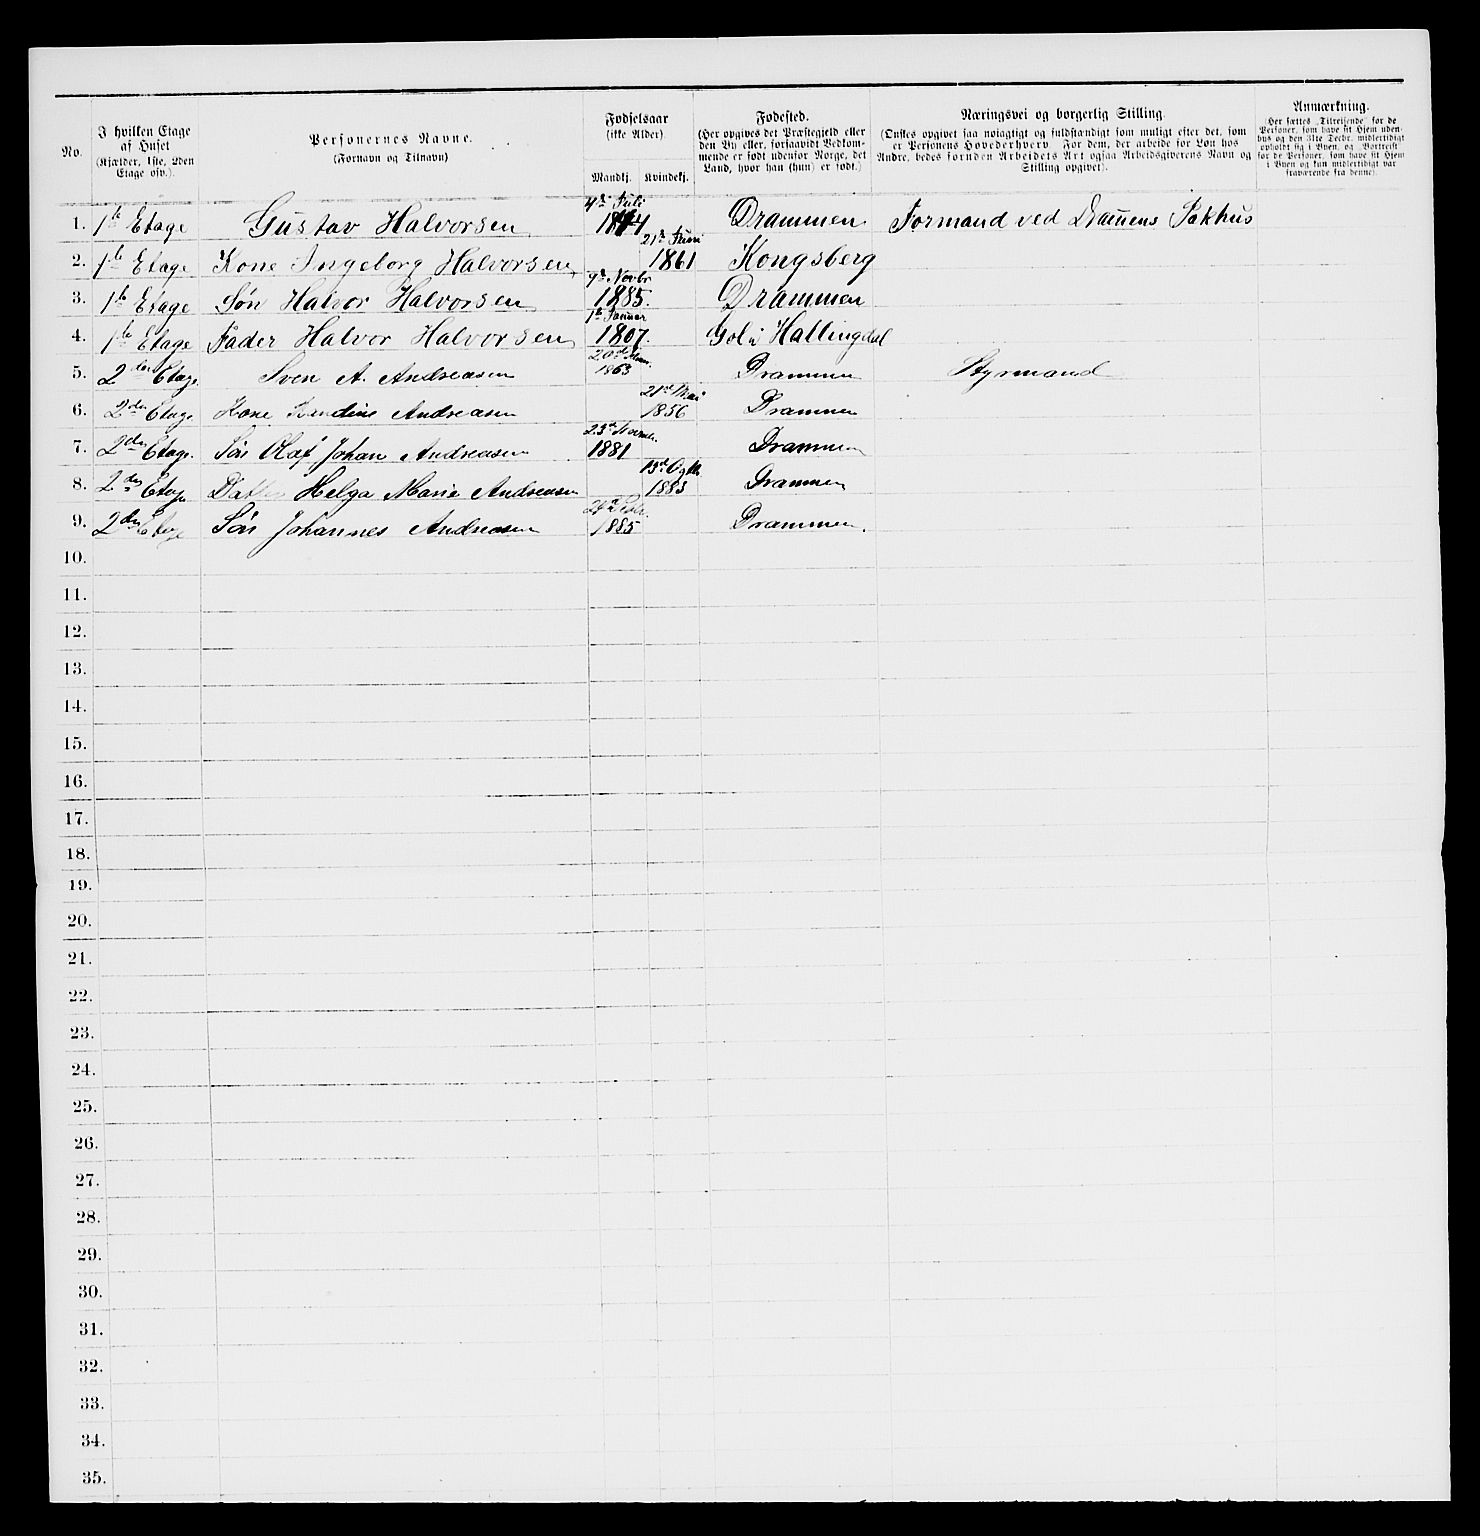 No.
I hvilken Etage
af Huset
(Kjælder, 1ste, 2den
Etage osv.).
Personernes Navne.
(Fornavn og Tilnavn)
Fødselsaar
(ikke Alder).
Mandkj.
Kvindekj.
Fødested.
(Her opgives det Præstegjeld eller
den By eller, forsaavidt Vedkom-
mende er født udenfor Norge, det
Land, hvor han (hun) er født.)
Næringsvei og borgerlig Stilling.
(Ønskes opgivet saa nøiagtigt og fuldstændigt som muligt efter det, som
er Personens Hovederhverv. For dem, der arbeide for Løn hos
Andre, bedes foruden Arbeidets Art ogsaa Arbeidsgiverens Navn og
Stilling opgivet).
Anmærkning.
(Her sættes „Tilreisende" for de
Personer, som have sit Hjem uden-
bys og den 31te Decbr. midlertidigt
opholdt sig i Byen, og „Bortreist"
for de Personer, som have sit Hjem
i Byen og kun midlertidigt var
fraværende fra denne).
1. 1ste Etage Gustav Halvorsen 4de Juli 1844 Drammen Formand ved Dramens Pakhus
2. 1ste Etage Kone Ingeborg Halvorsen 21de Juni 1861 Kongsberg
3. 1ste Etage Søn Halvor Halvorsen 9de Novbr 1885. Drammen
4. 1ste Etage Fader Halvor Halvorsen 1ste Januar 1807. Gol i Hallingdal
5. 2den Etage Sven A. Andreasen 20de 1863 Drammen Styrmand
6. 2den Etage Kone Andreasen 21de Mai 1856 Drammen
7. 2den Etage. Søn Olaf Johan Andreasen 23de 1881 Drammen
8. 2den Etage Datter Helga Marie Andreasen 13de 1883 Drammen
9. 2den Etage Søn Johannes Andreasen 1885 Drammen.
10.
11.
12.
13.
14.
15.
16.
17.
18.
19.
20.
21.
22.
23.
24.
25.
26.
27.
28.
29.
30.
31.
32.
33.
34.
35.